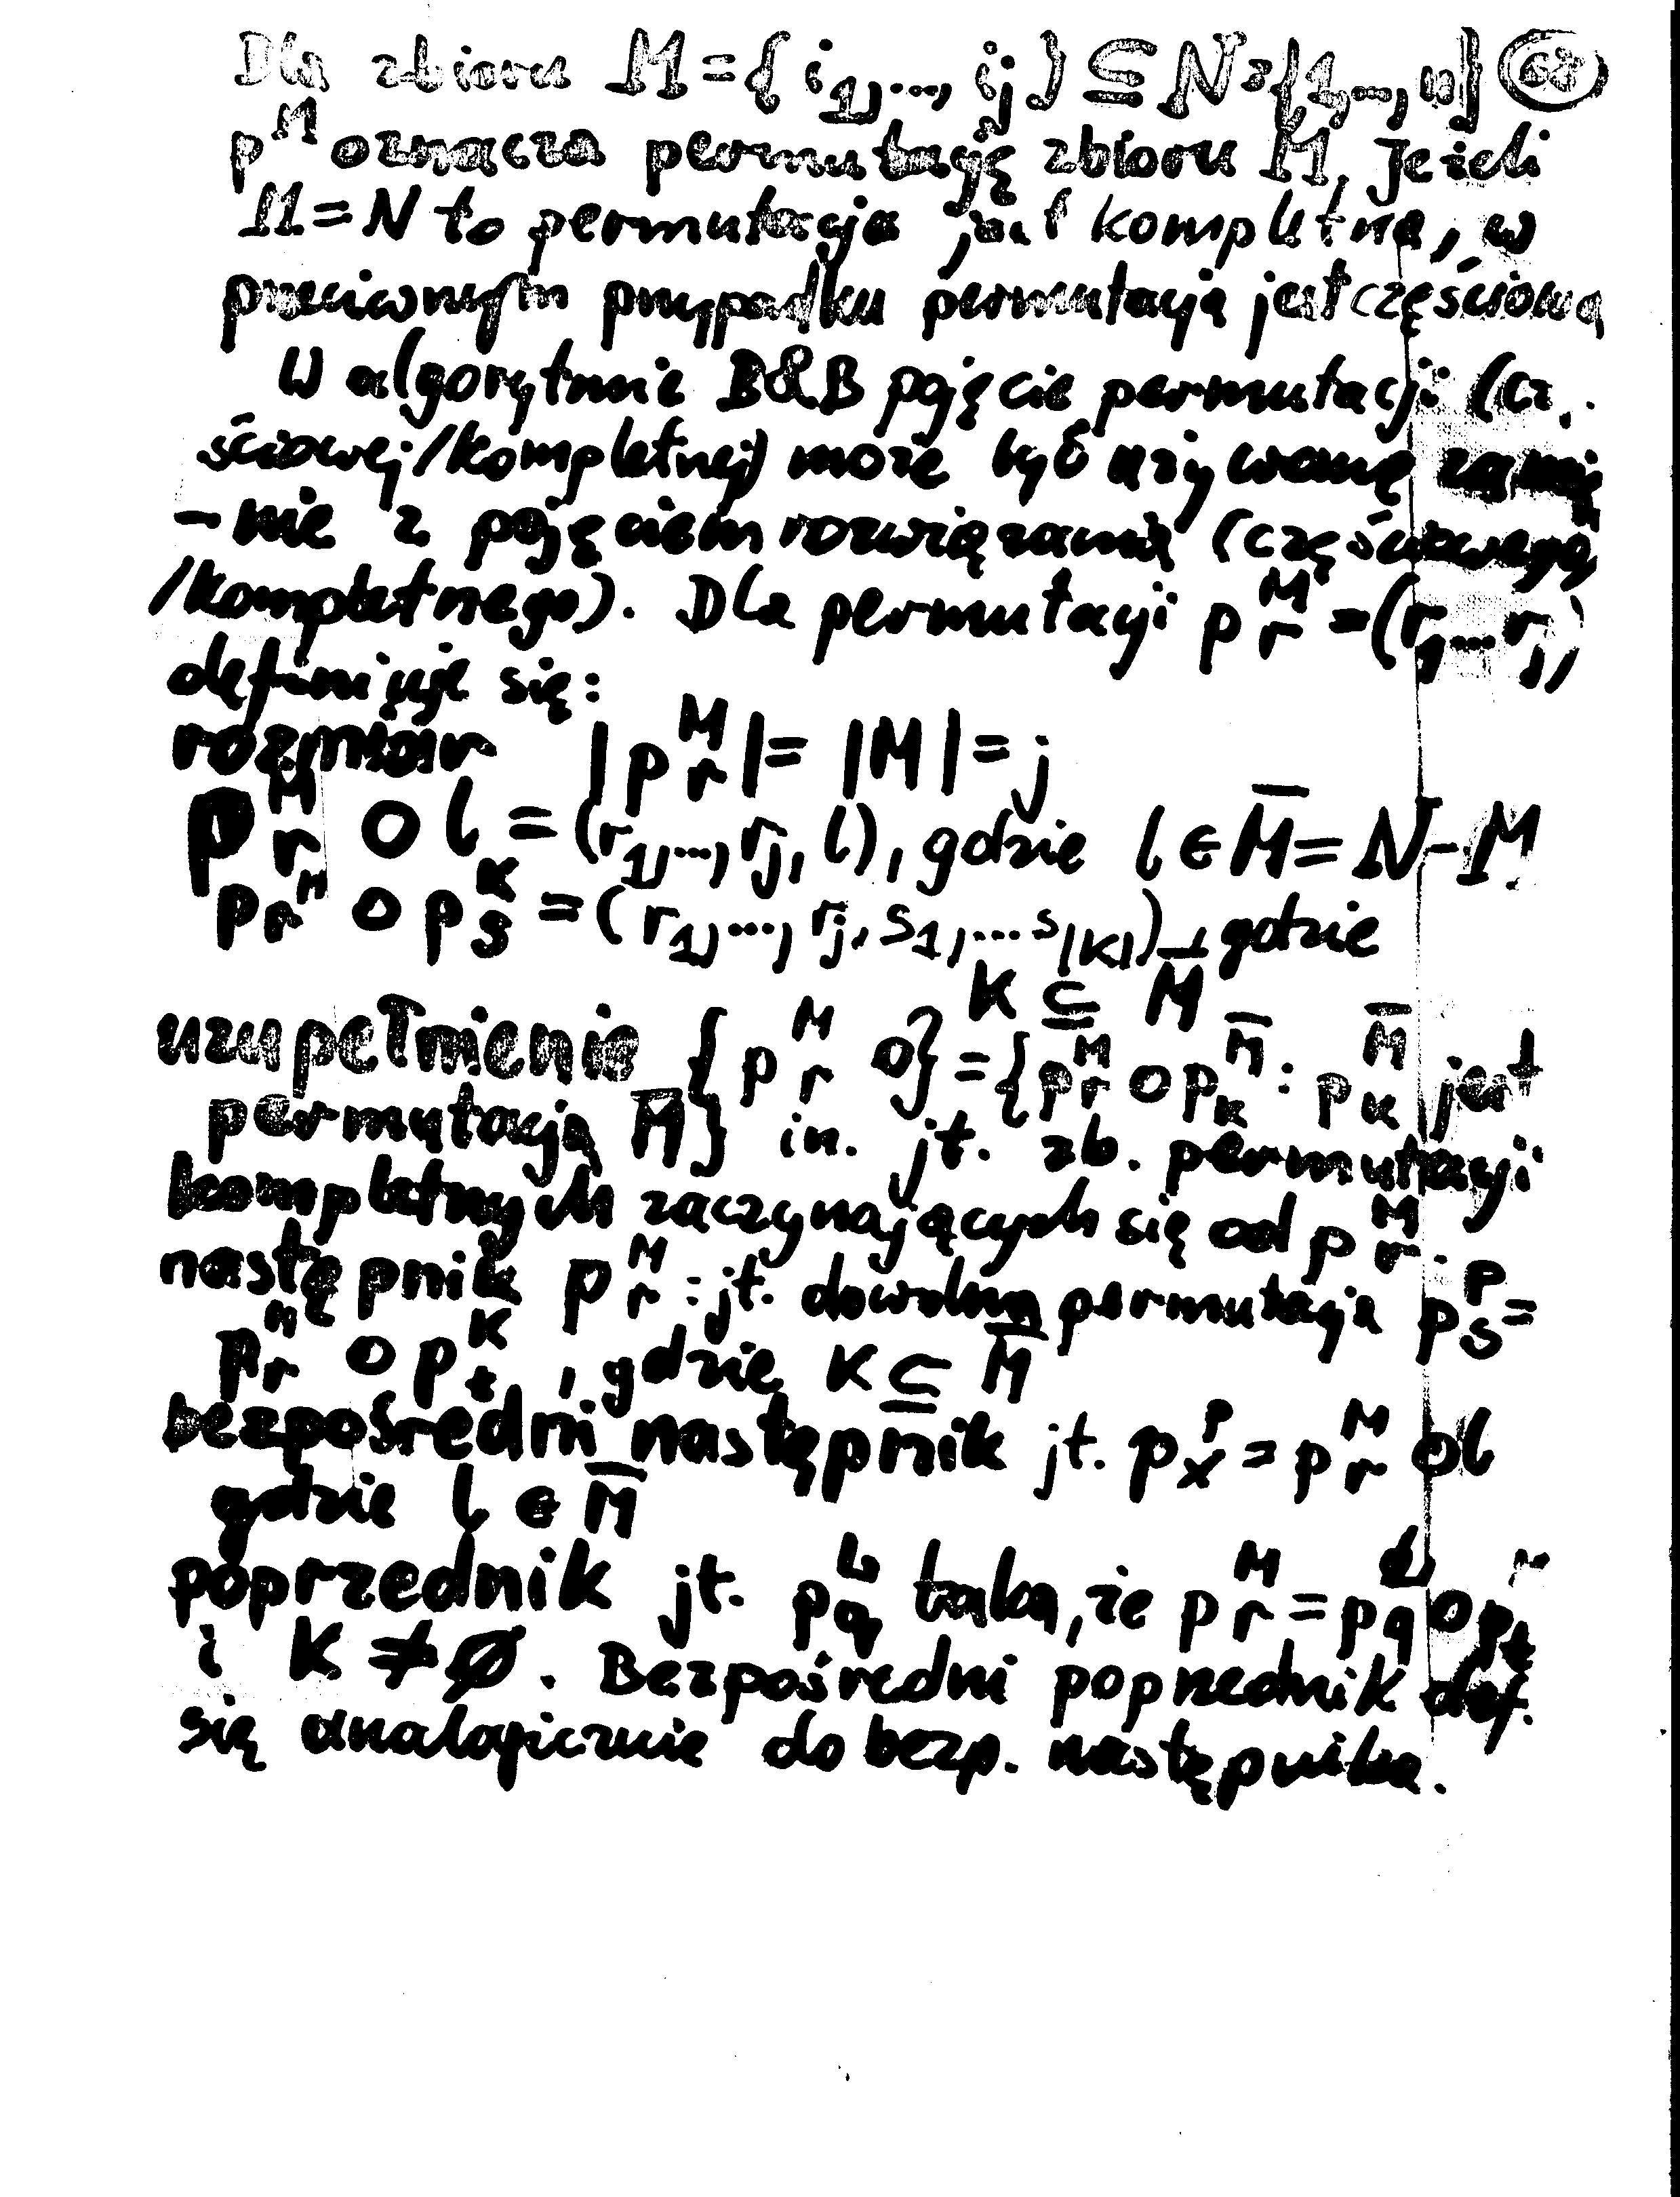 Dla zbioru M = { i₁,..., iⱼ } ⊆ N = {1,..., n} 68
p^M oznacza permutację zbioru M. Jeżeli
M = N to permutacja jest kompletna, w
przeciwnym przypadku permutacja jest częściowa
W algorytmie B&B pojęcie permutacji (
ściowej/kompletnej) może być używane zamie
-nie z pojęciem rozwiązania (częściowego
/kompletnego). Dla permutacji p_r^M = (r₁,...rⱼ),
definiuje się:
rozmiar |p_r^M| = |M| = j
p_r^M o l = (r₁,..., rⱼ, l), gdzie l ∈ M̅ = N - M
p_r^M o p_s^K = (r₁,..., rⱼ, s₁,... s_|K|), gdzie
K ⊆ M̅
uzupełnienie {p_r^M o} = {p_r^M o p_k^M̅ : p_k^M̅ jest
permutacją M̅} in. jt. zb. permutacji
kompletnych zaczynających się od p_r^M.
następnik p_r^M : jt. dowolna permutacja p_s^P =
p_r^M o p_t^K, gdzie K ⊆ M̅
bezpośredni następnik jt. p_x^P = p_r^M o l
gdzie l ∈ M̅
poprzednik jt. p_q^L taka, że p_r^M = p_q^L o p_t
i K ≠ Ø. Bezpośredni poprzednik def.
się analogicznie do bezp. następnika.